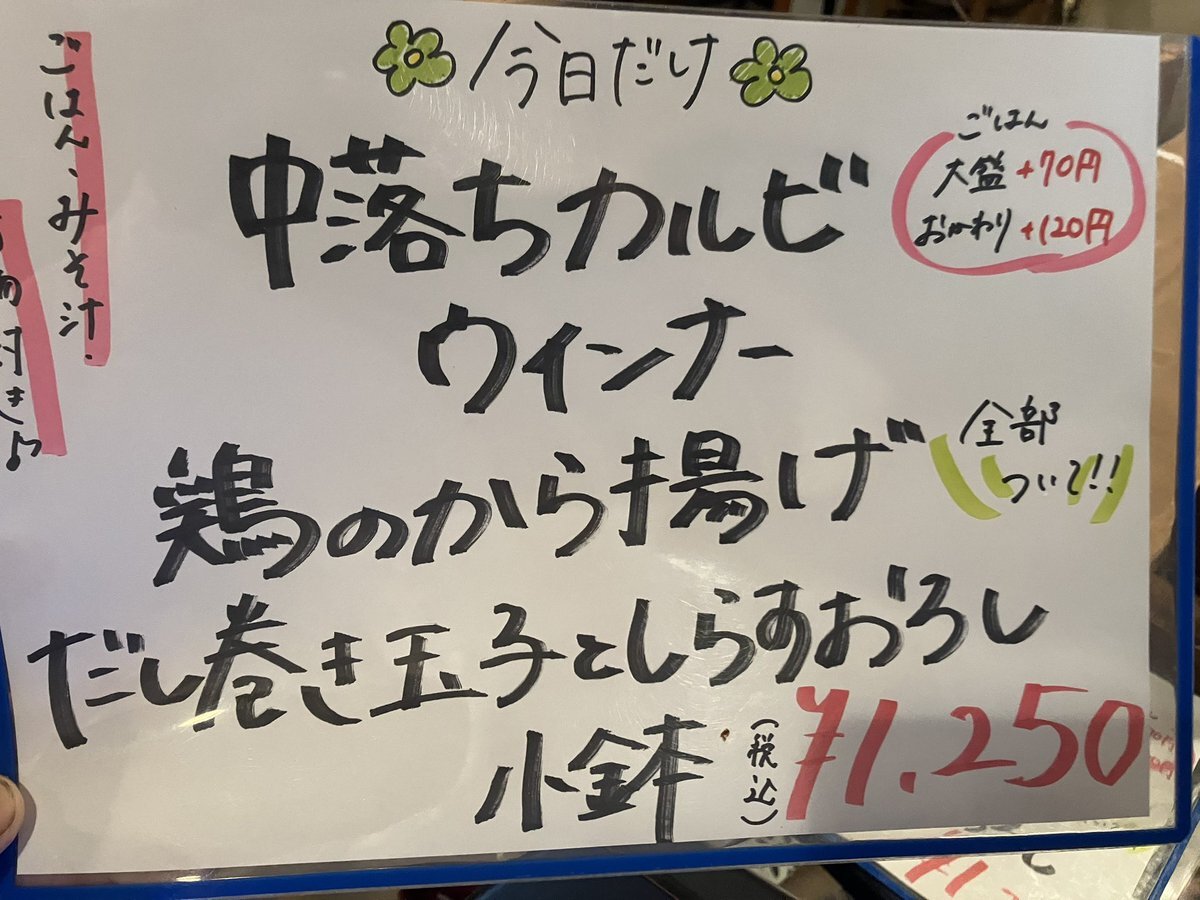 今日だけ
中落ちカルビ
ウインナー
鶏のから揚げ
だし巻き玉子としらすおろし
小鉢
(税込)
¥1.250
全部
ついて!!
ごはん
大盛 +70円
おかわり +120円
ごはん、みそ汁.
付き♪